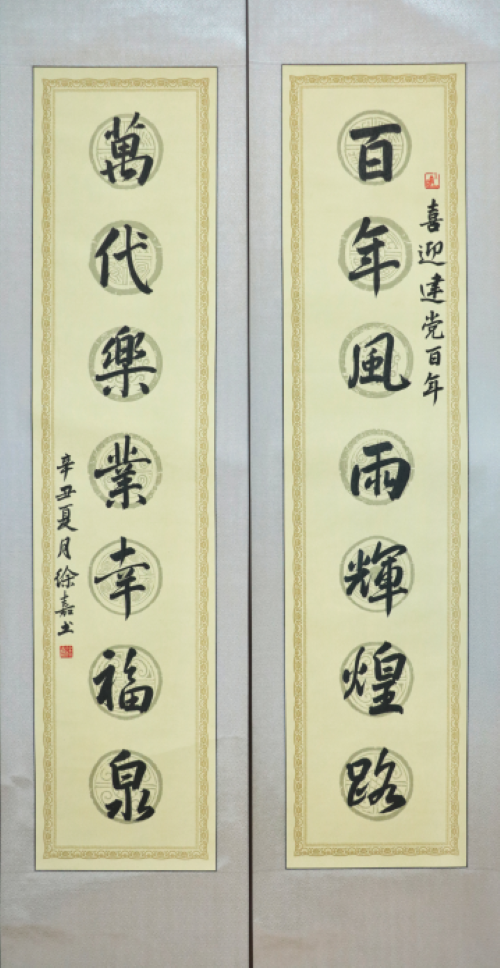 喜迎建党百年
百年風雨輝煌路
萬代樂業幸福泉
辛丑夏月徐嘉书